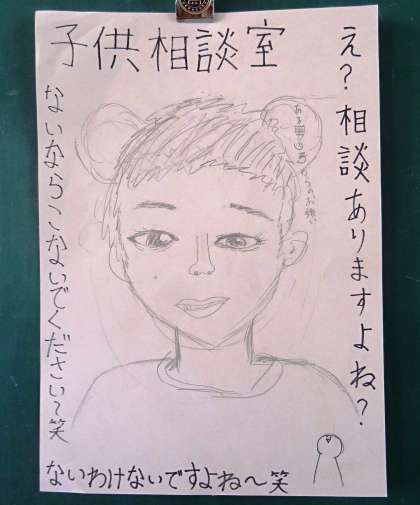 子供相談室
え?相談ありますよね?
ないならこないでください〜笑
ないわけないですよね〜笑